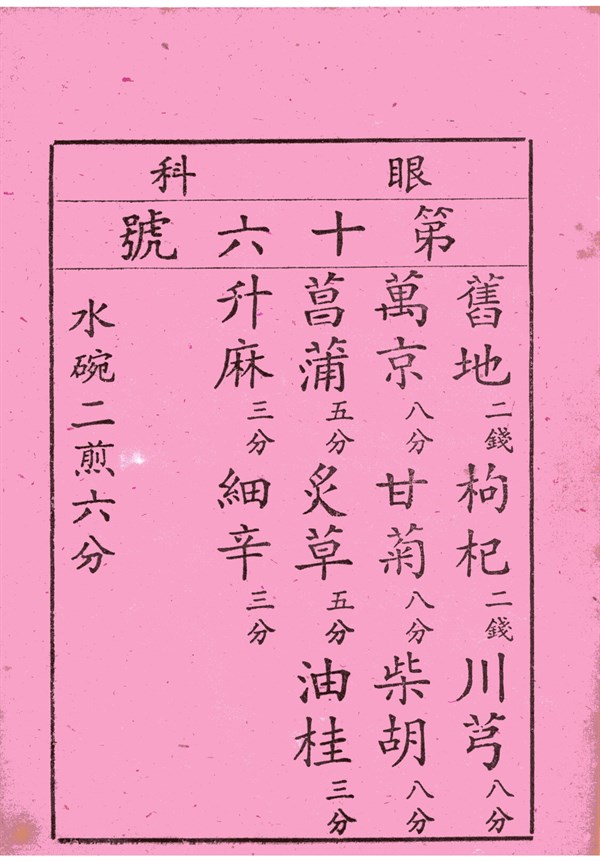 眼科
第十六號
舊地二錢枸杞二錢川芎八分
萬京八分甘菊八分柴胡八分
菖蒲五分炙草五分油桂三分
升麻三分細辛三分
水碗二煎六分